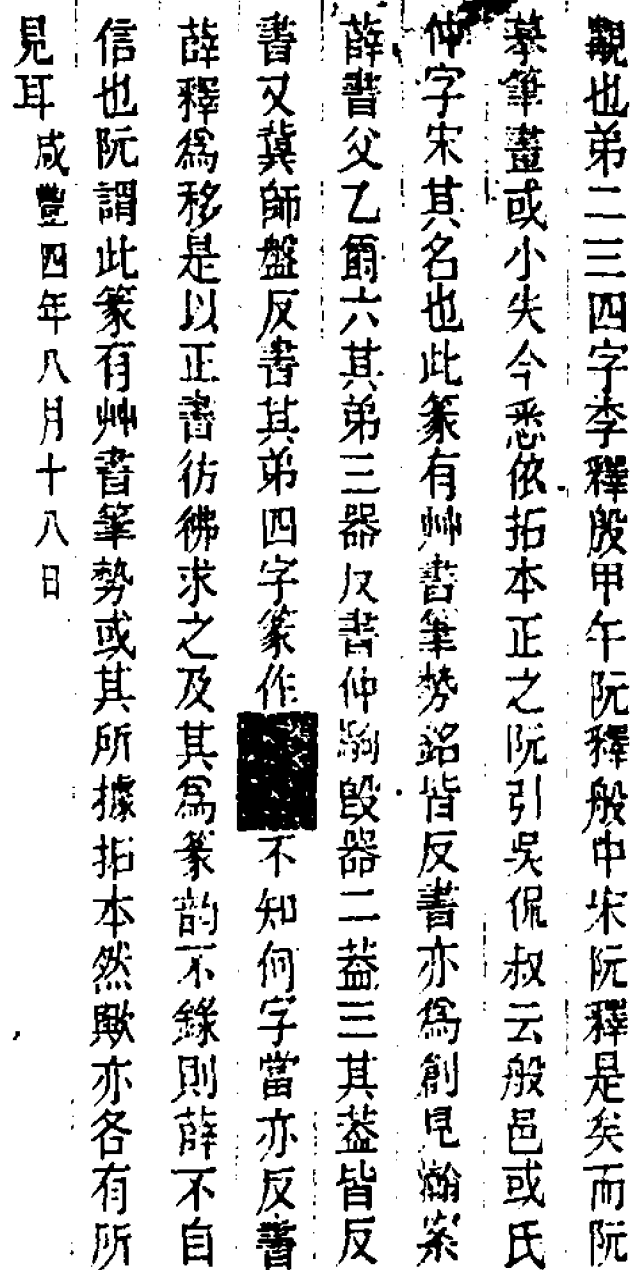 覯也弟二三四字李釋殷甲午阮釋般中宋阮釋是矣而阮
摹筆畫或小失今悉依拓本正之阮引吳侃叔云般邑或氏
仲字宋其名也此篆有艸書筆勢銘皆反書亦爲創見瀚案
薛書父乙爵六其弟三器反書仲駒𣪘器二葢三其葢皆反
書又冀師盤反書其弟四字篆作不知何字當亦反書
薛釋爲移是以正書彷彿求之及其爲篆韵不錄則薛不自
信也阮謂此篆有艸書筆勢或其所據拓本然歟亦各有所
見耳咸豐四年八月十八日